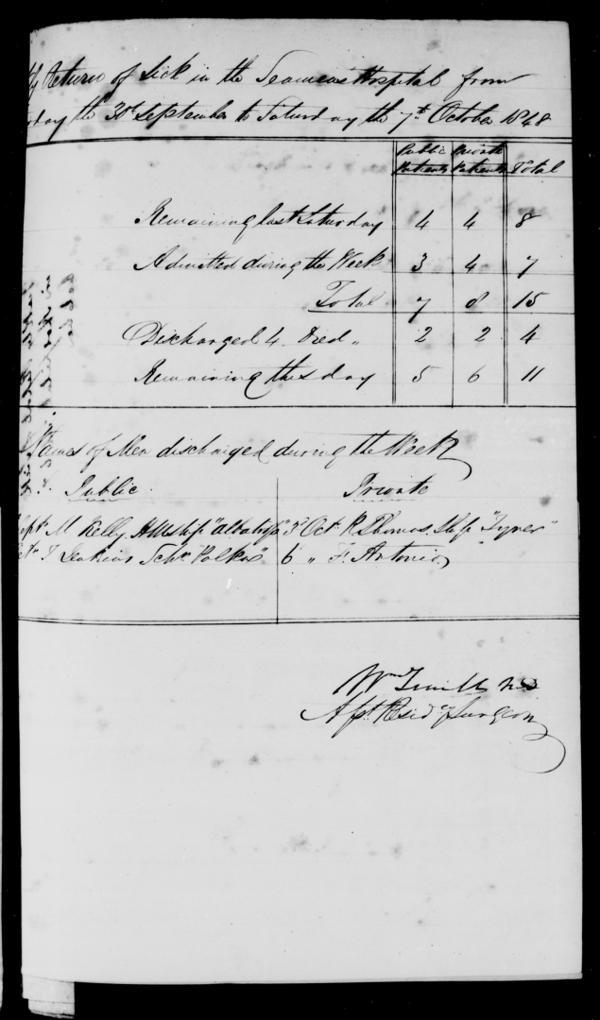 Return of Sick in the Seamens Hospital from
the 30th September to Saturday the 7th October 1848
Public Patients Private Patients Total
Remaining last Saturday 4 4 8
Admitted during the Week 3 4 7
Total 7 8 15
Discharged 4 Died " 2 2 4
Remaining this day 5 6 11
Names of Men discharged during the Week
Public Private
M Kelly HM Ship 3d Oct. R Thomas Ship
Jenkins Schr Polka" 6 " F. Antonio
Wm
Asst Resid Surgeon